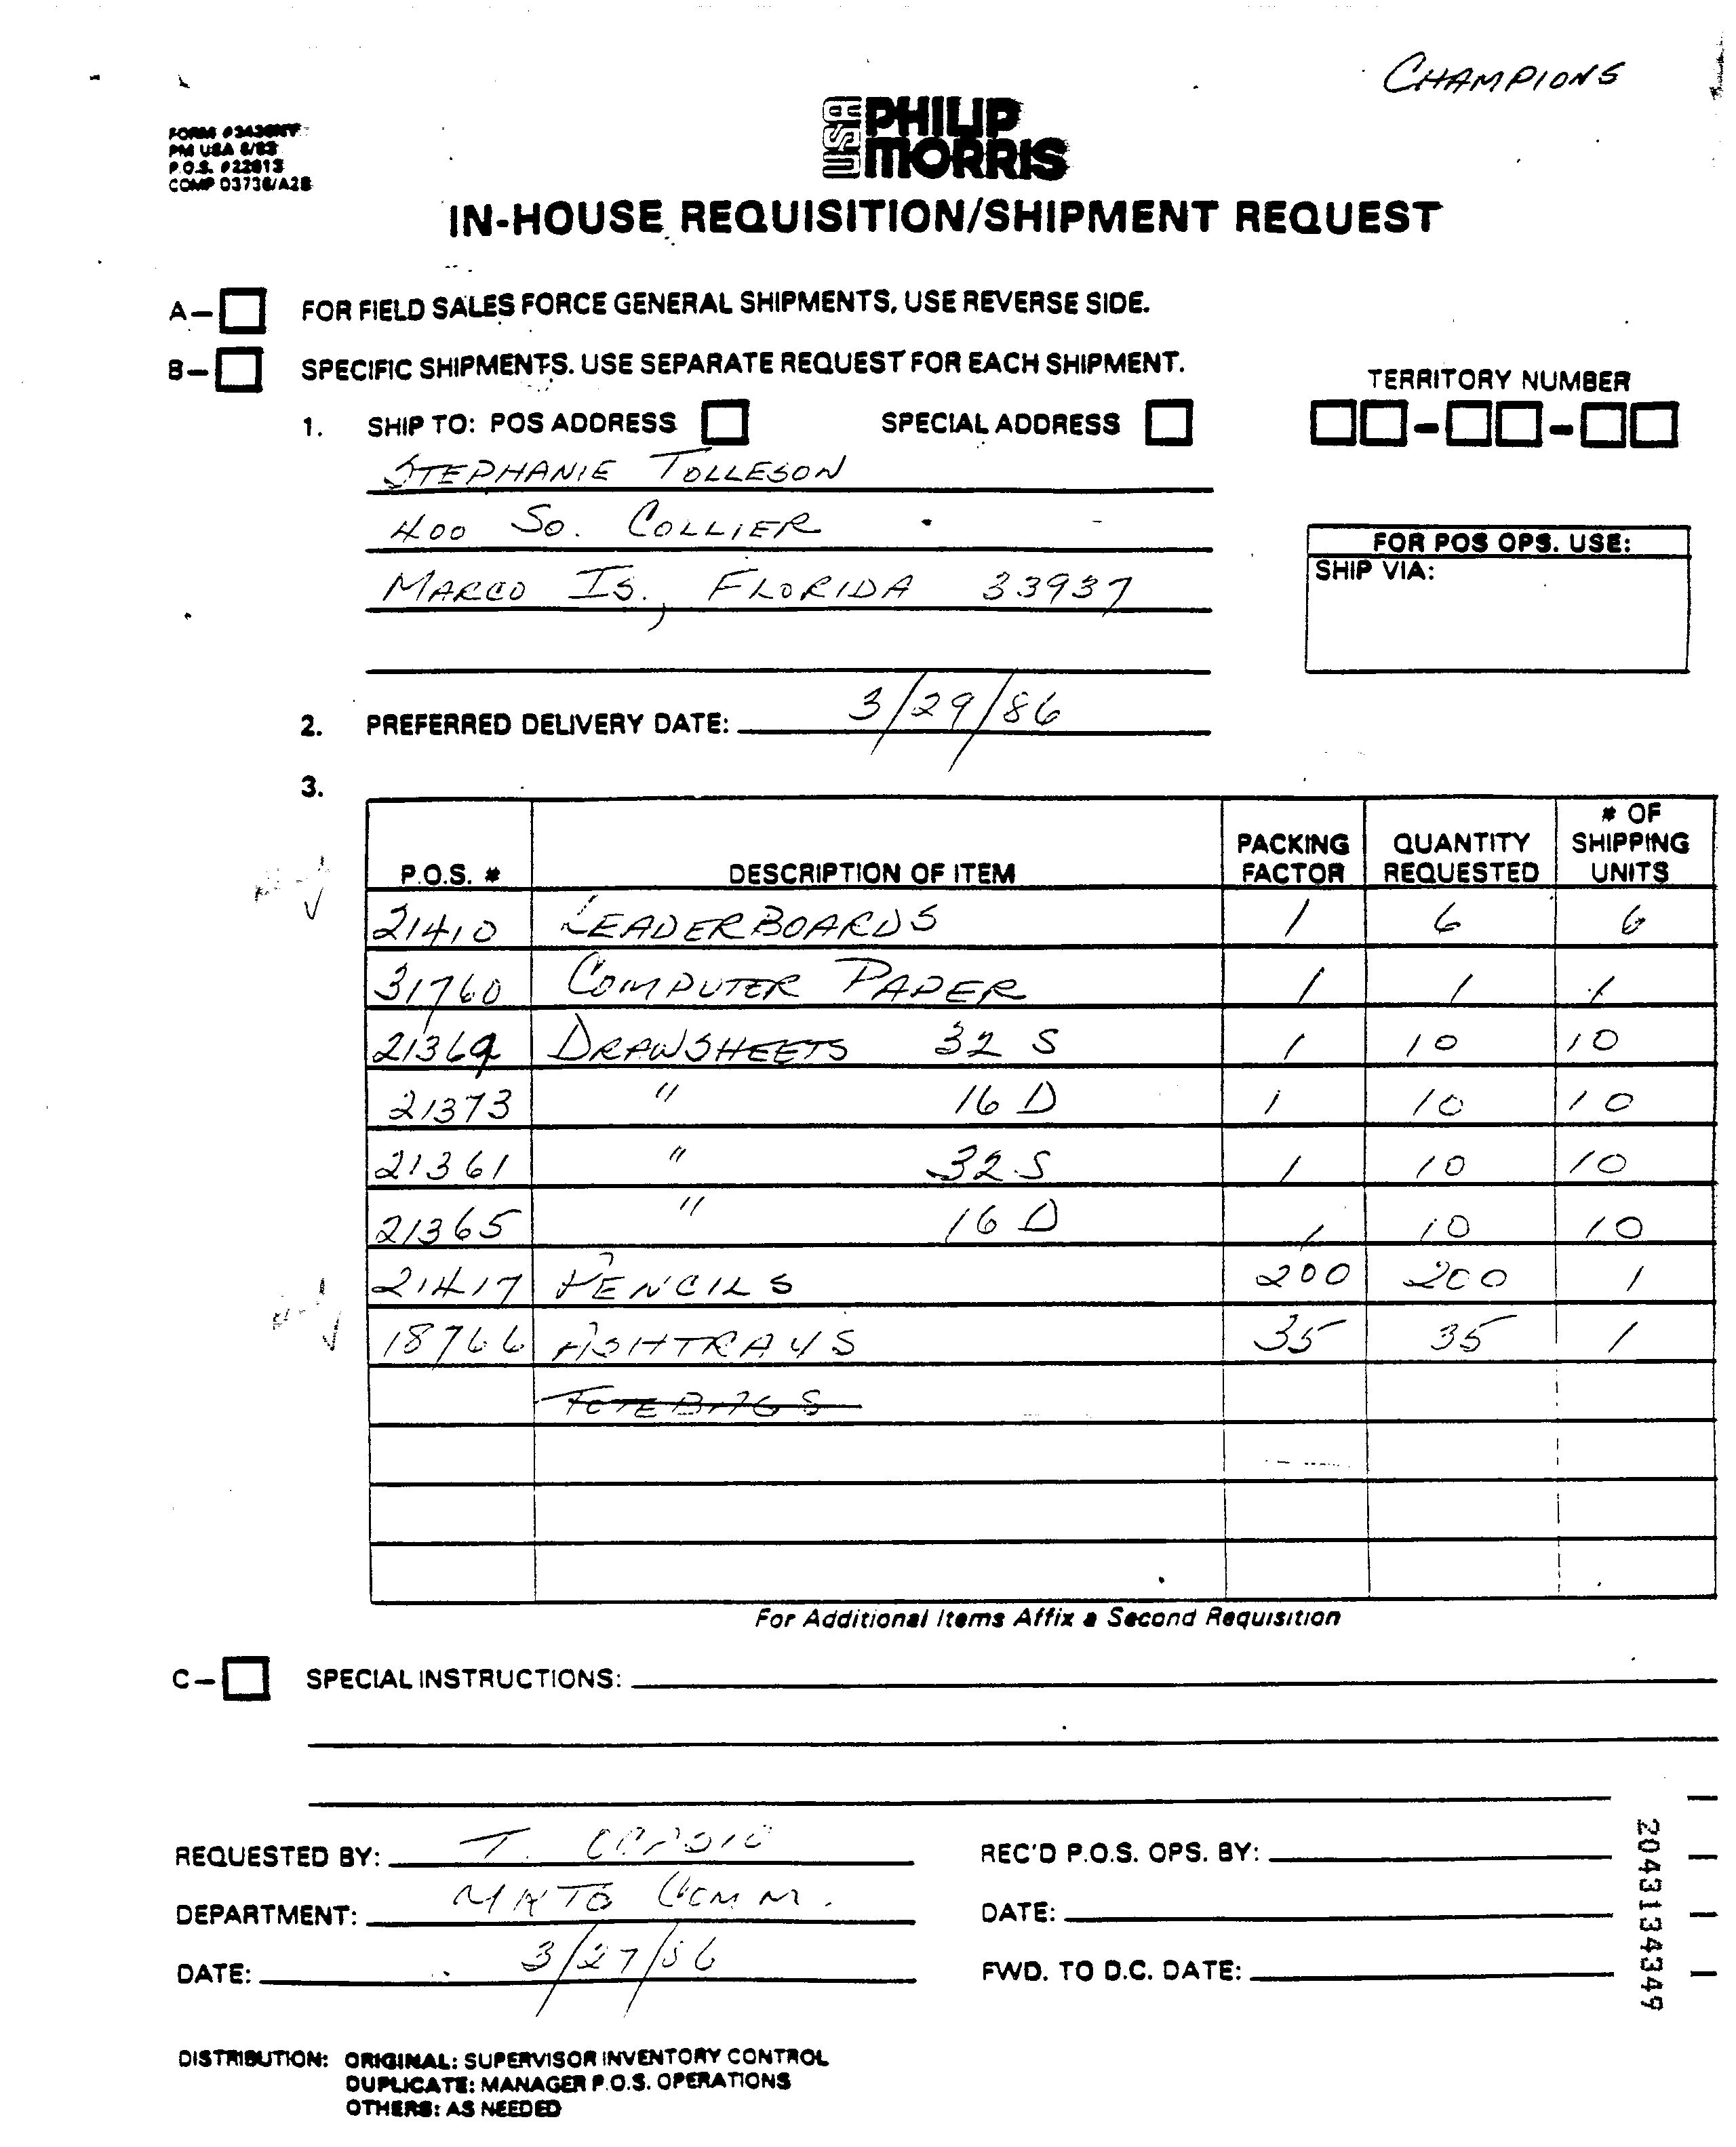 CHAMPIONS
USA PHILIP MORRIS
FORM #3436NY
PM USA 6/83
P.O.S. #22613
COMP 03736/A2B
IN-HOUSE REQUISITION/SHIPMENT REQUEST
A- FOR FIELD SALES FORCE GENERAL SHIPMENTS, USE REVERSE SIDE.
B- SPECIFIC SHIPMENTS. USE SEPARATE REQUEST FOR EACH SHIPMENT.
TERRITORY NUMBER
1. SHIP TO: POS ADDRESS SPECIAL ADDRESS
STEPHANIE TOLLESON
400 SO. COLLIER
MARCO IS., FLORIDA 33937
FOR POS OPS. USE:
SHIP VIA:
2. PREFERRED DELIVERY DATE: 3/29/86
3.
P.O.S. # DESCRIPTION OF ITEM PACKING FACTOR QUANTITY REQUESTED # OF SHIPPING UNITS
21410 LEADERBOARDS 1 6 6
31760 COMPUTER PAPER 1 1 1
21369 DRAWSHEETS 32 S 1 10 10
21373 " 16 D 1 10 10
21361 " 32 S 1 10 10
21365 " 16 D 1 10 10
21417 PENCILS 200 200 1
18766 ASHTRAYS 35 35 1
TOTE BAGS
For Additional Items Affix a Second Requisition
C- SPECIAL INSTRUCTIONS:
REQUESTED BY: T.
DEPARTMENT: COMM.
DATE: 3/27/86
REC'D P.O.S. OPS. BY:
DATE:
FWD. TO D.C. DATE:
2043134349
DISTRIBUTION: ORIGINAL: SUPERVISOR INVENTORY CONTROL
DUPLICATE: MANAGER P.O.S. OPERATIONS
OTHERS: AS NEEDED